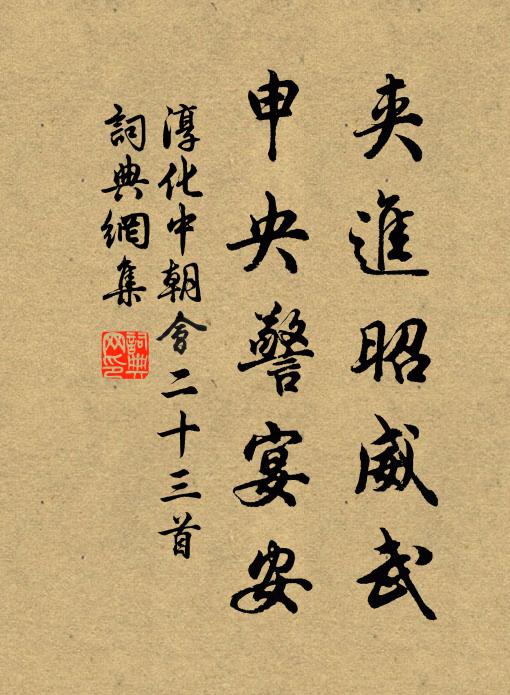 夾進昭威武
申央警宴安
淳化中朝會二十三首
詞典網集
詞典網印